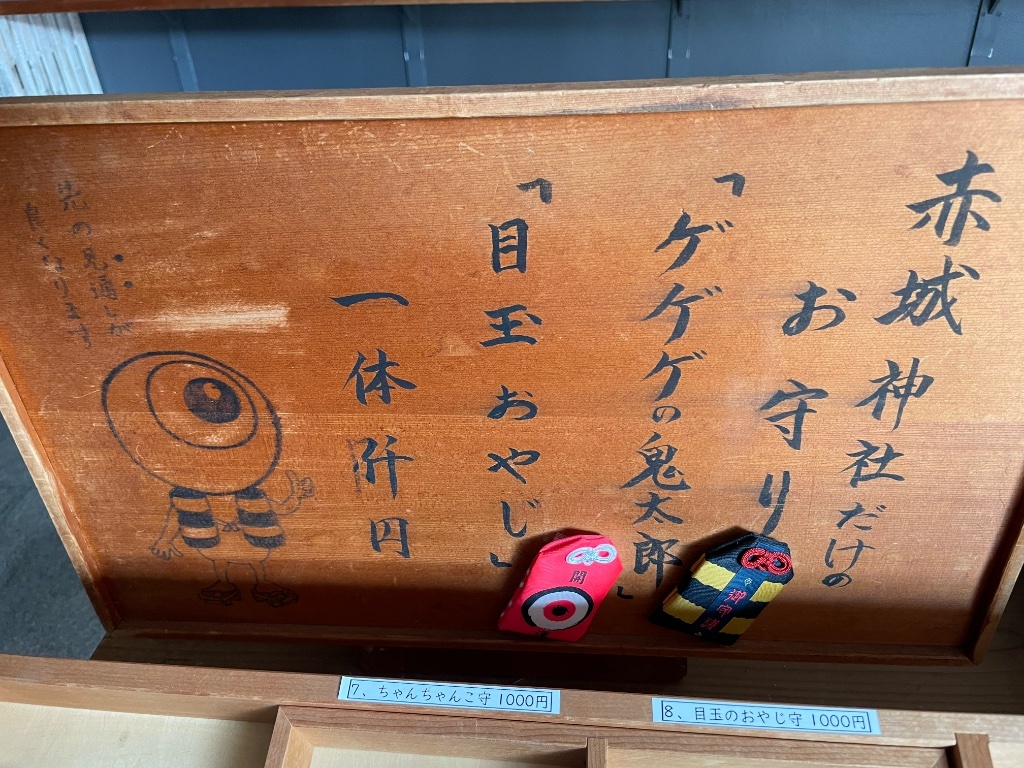 赤城神社だけの
お守り
「ゲゲゲの鬼太郎」
「目玉おやじ」
一体 阡円
先の見通しが
良くなります
開
御守護
7、ちゃんちゃんこ守 1000円
8、目玉のおやじ守 1000円